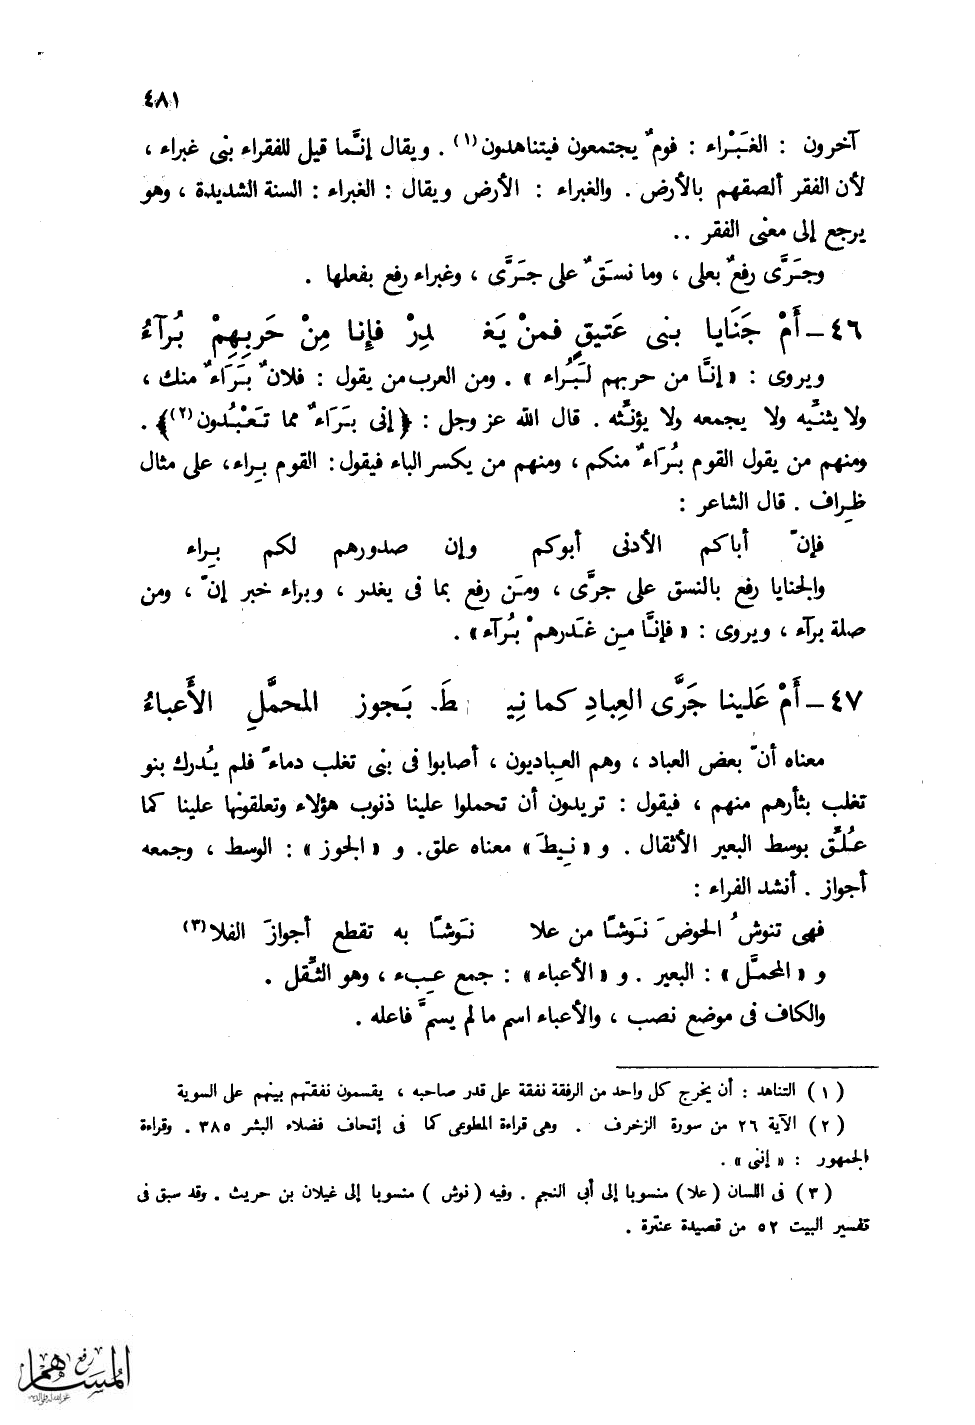 ٤٨١
آخرون : الغَبْراء : قومٌ يجتمعون فيتناهدون(١) . ويقال إنَّما قيل للفقراء بنى غبراء ،
لأن الفقر ألصقهم بالأرض . والغبراء : الأرض ويقال : الغبراء : السنة الشديدة ، وهو
يرجع إلى معنى الفقر ..
وجَرَّى رفعٌ بعلى ، وما نسَقٌ على جَرَّى ، وغبراء رفع بفعلها .
٤٦ – أَمْ جَنَايا بنى عَتيقٍ فمنْ يَغـ لدِرْ فإِنا مِنْ حَربِهِمْ بُرآءُ
ويروى : « إنَّا من حربهم لَبُراء » . ومن العرب من يقول : فلانٌ بَرَاءٌ منك ،
ولا يثنِّيه ولا يجمعه ولا يؤنِّثه . قال الله عز وجل : ﴿ إنى بَرَاءٌ مما تَعْبُدون(٢)﴾ .
ومنهم من يقول القوم بُرَاءٌ منكم ، ومنهم من يكسر الباء فيقول : القوم بِراء ، على مثال
ظِراف . قال الشاعر :
فإنّ أباكم الأدنى أبوكم وإن صدورهم لكم بِراء
والجنايا رفع بالنسق على جرَّى ، ومَن رفع بما فى يغدر ، وبراء خبر إنّ ، ومن
صلة برآء ، ويروى : « فإنَّا مِن غَدرهمْ بُرآء » .
٤٧ – أَمْ عَلَينا جَرَّى العِبادِ كما نِيـ طَ بَجوز المحمَّلِ الأَعباءُ
معناه أنّ بعض العباد ، وهم العباديون ، أصابوا فى بنى تغلب دماءً فلم يُدرك بنو
تغلب بثأرهم منهم ، فيقول : تريدون أن تحملوا علينا ذنوب هؤلاء وتعلقونها علينا كما
عُلِّق بوسط البعير الأثقال . و « نِيطَ » معناه علق . و « الجوز » : الوسط ، وجمعه
أجواز . أنشد الفراء :
فهى تنوشُ الحوضَ نَوشًا من علا نَوشًا به تقطع أجوازَ الفلا(٣)
و « المحمَّل » : البعير . و « الأعباء » : جمع عِبء ، وهو الثِّقل .
والكاف فى موضع نصب ، والأعباء اسم ما لم يسمَّ فاعله .
( ١ ) التناهد : أن يخرج كل واحد من الرفقة نفقة على قدر صاحبه ، يقسمون نفقتهم بينهم على السوية
( ٢ ) الآية ٢٦ من سورة الزخرف . وهى قراءة المطوعى كما فى إتحاف فضلاء البشر ٣٨٥ . وقراءة
الجمهور : « إننى » .
( ٣ ) فى اللسان ( علا ) منسوبا إلى أبى النجم . وفيه ( نوش ) منسوبا إلى غيلان بن حريث . وقد سبق فى
تفسير البيت ٥٢ من قصيدة عنترة .
رفع
المساهم